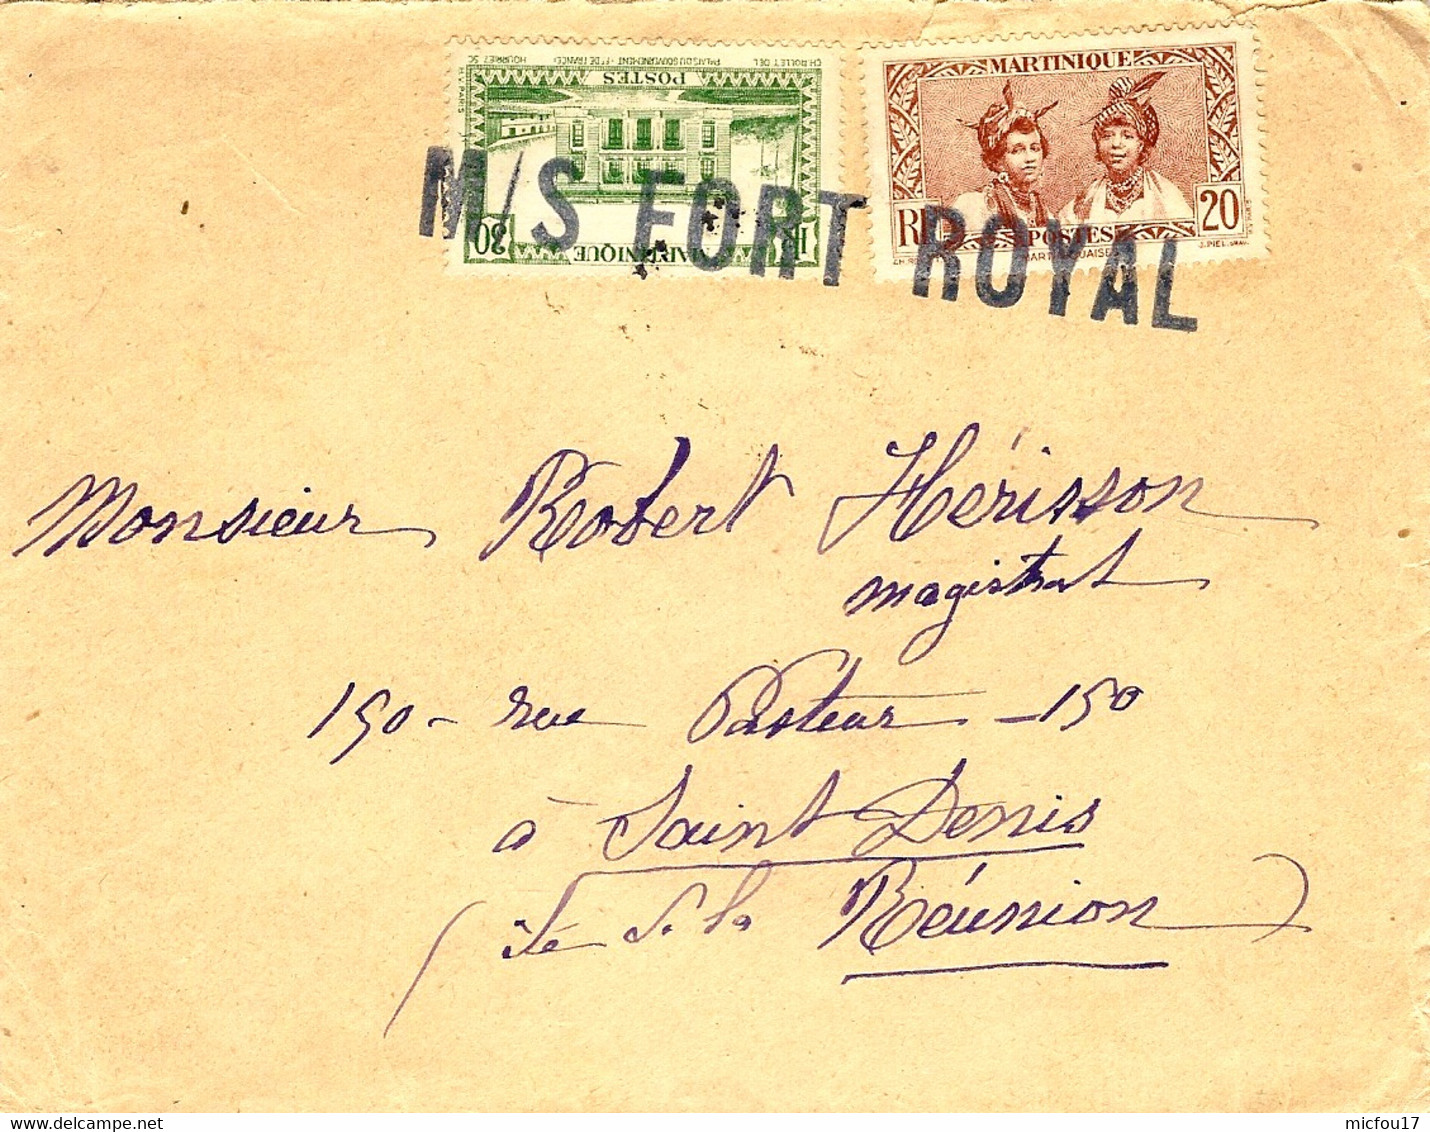 CH ROLLET DEL PALAIS DU GOUVERNEMENT - FT DE FRANCE HOURRIEZ SC
POSTES
MARTINIQUE
RF
20
POSTES
MARTINIQUAISES
J. PIEL. GRAV.
MARTINIQUE
M/S FORT ROYAL
Monsieur Robert Hérisson
magistrat
150 - rue Pasteur - 150
à Saint Denis
(île de la Réunion)
micfou17